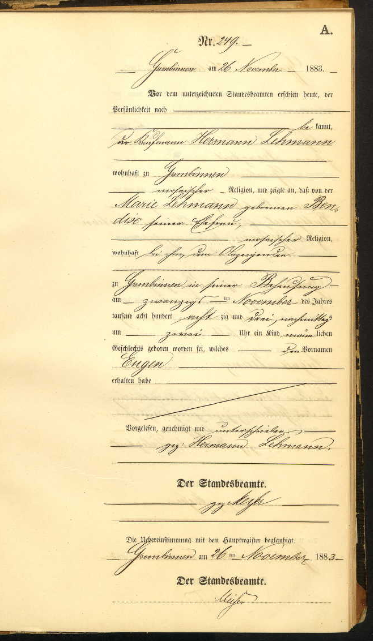 A.
Nr. 249.
Gumbinnen am 26 November 1883.
Vor dem unterzeichneten Standesbeamten erschien heute, der
Persönlichkeit nach
be kannt,
der Kaufmann Hermann Lehmann
wohnhaft zu Gumbinnen
mosaischer Religion, und zeigte an, daß von der
Marie Lehmann geborenen Ben-
dix seiner Ehefrau
mosaischer Religion,
wohnhaft bei ihm
zu Gumbinnen in seiner Behausung
am zwanzigsten November des Jahres
tausend acht hundert acht zig und drei, nachmittags
um zwei Uhr ein Kind männ lichen
Geschlechts geboren worden sei, welches den Vornamen
Eugen
erhalten habe
Vorgelesen, genehmigt und unterschrieben
gez. Hermann Lehmann.
Der Standesbeamte.
gez.
Die Uebereinstimmung mit dem Hauptregister beglaubigt.
Gumbinnen am 26 ten November 1883
Der Standesbeamte.